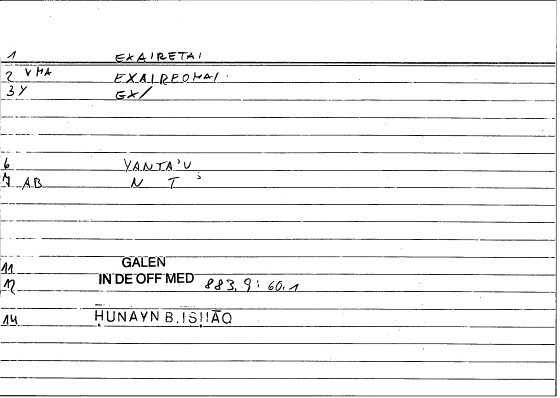 1 EXAIRETAI
2 VMA EXAIREOMAI.
3 Y EX/
6 YANTA'U
7 AB N T '
11 GALEN
12 IN DE OFF MED 883,9: 60,1
14 ḤUNAYN B.ISḤĀQ